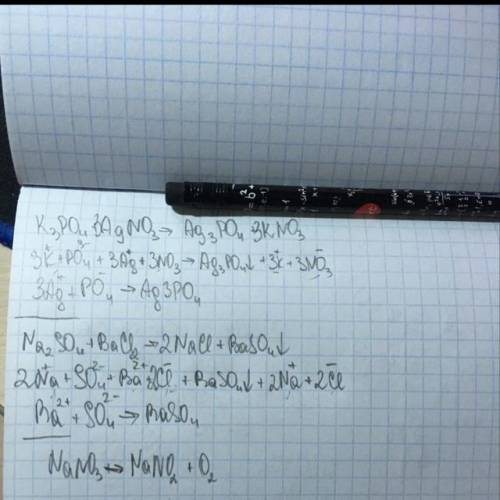 K₃PO₄ 3AgNO₃ → Ag₃PO₄ 3KNO₃
3K⁺+PO₄³⁻ + 3Ag⁺+3NO₃⁻→Ag₃PO₄↓ +3K⁺+3NO₃⁻
3Ag⁺+PO₄⁻→Ag3PO₄
Na₂SO₄+BaCl₂→2NaCl+BaSO₄↓
2Na⁺+SO₄²⁻+Ba²⁺2Cl⁻+BaSO₄↓+2Na⁺+2Cl⁻
Ba²⁺+SO₄²⁻→BaSO₄
NaNO₃↔NaNO₂+O₂